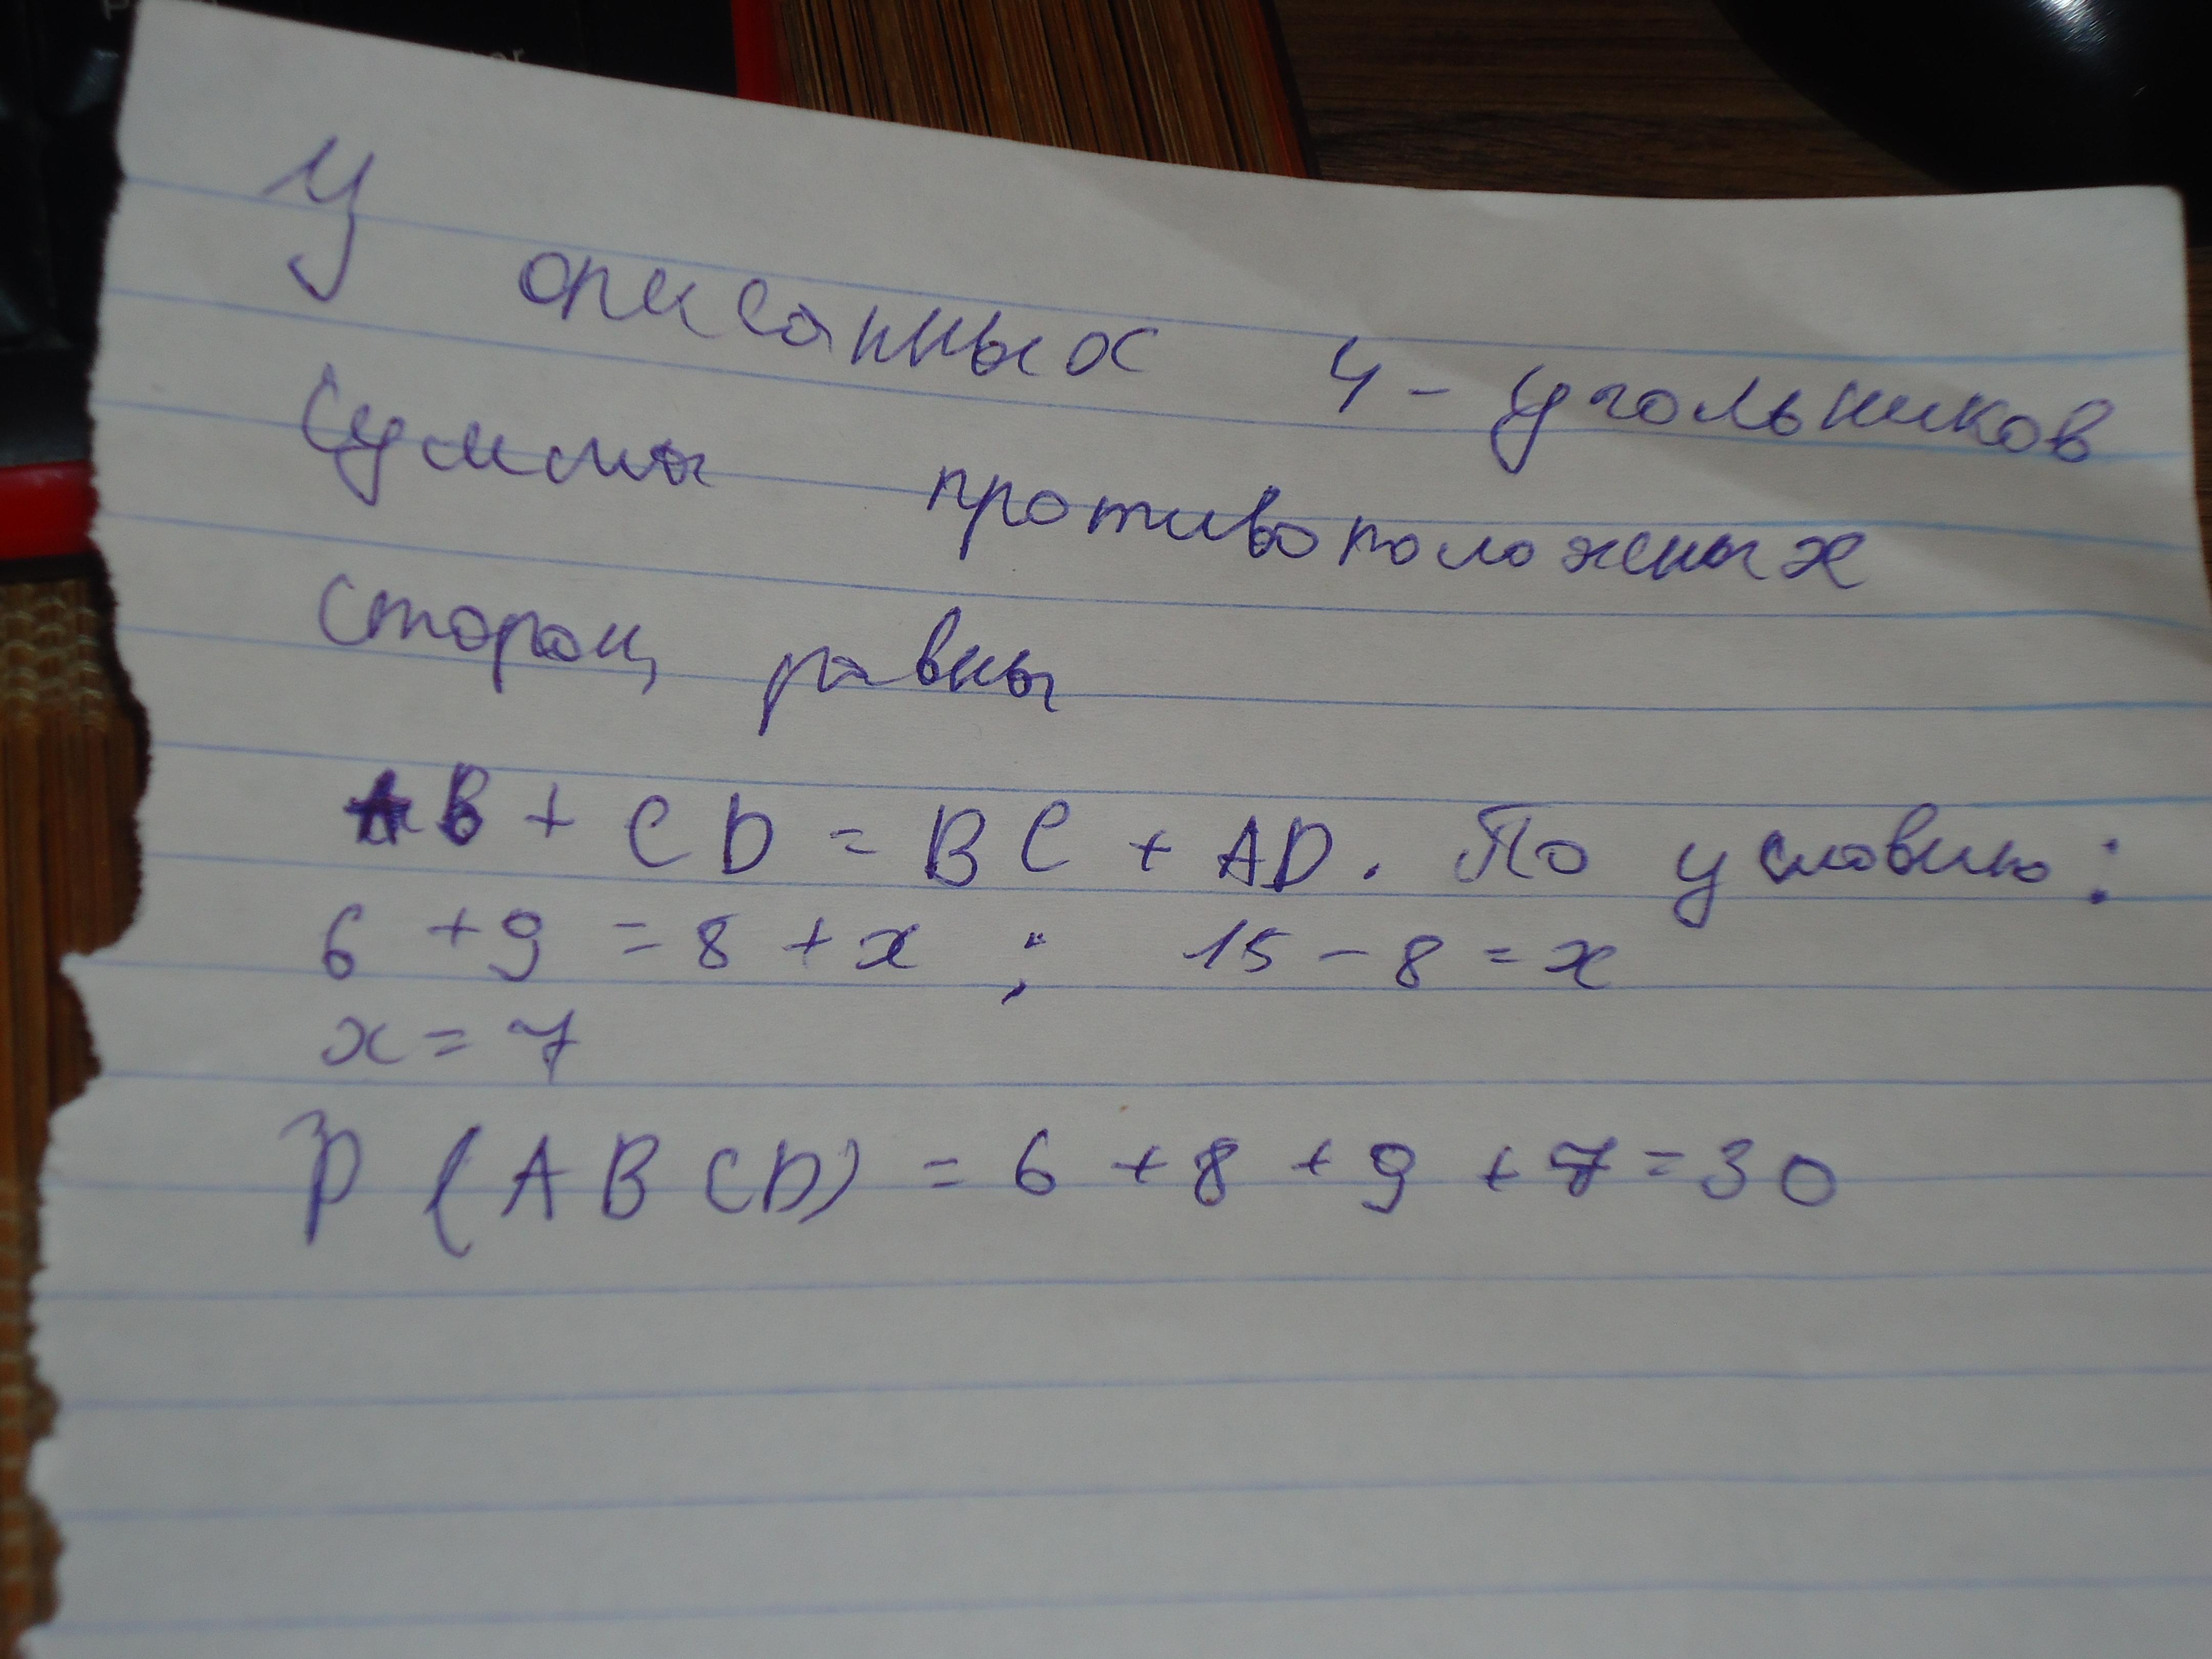 У описанных 4-угольников
суммы противоположных
сторон равны
AB + CD = BC + AD. По условию:
6 + 9 = 8 + x ; 15 - 8 = x
x = 7
P (ABCD) = 6 + 8 + 9 + 7 = 30